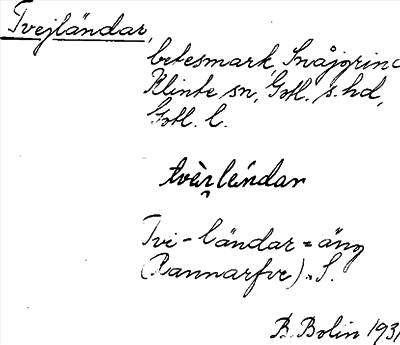 Tvejländar,
betesmark, Snåjgrind
Klinte sn, Gotl. s. hd,
Gotl. l.
tvèi̯léndar
Tvi-ländar = äng
(Rannarfve). S.
B. Bolin 1931